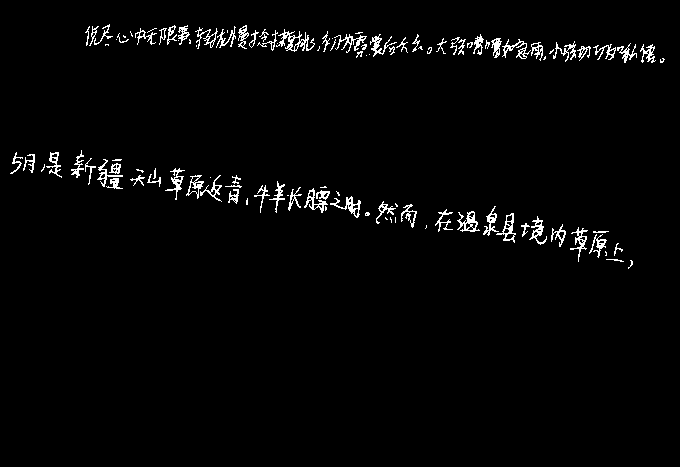 说尽心中无限事、轻拢慢捻抹复挑,初为霓裳后六幺。大弦嘈嘈如急雨,小弦切切如私语。
5月,是新疆天山草原返青、牛羊长膘之时。然而,在温泉县境内草原上,